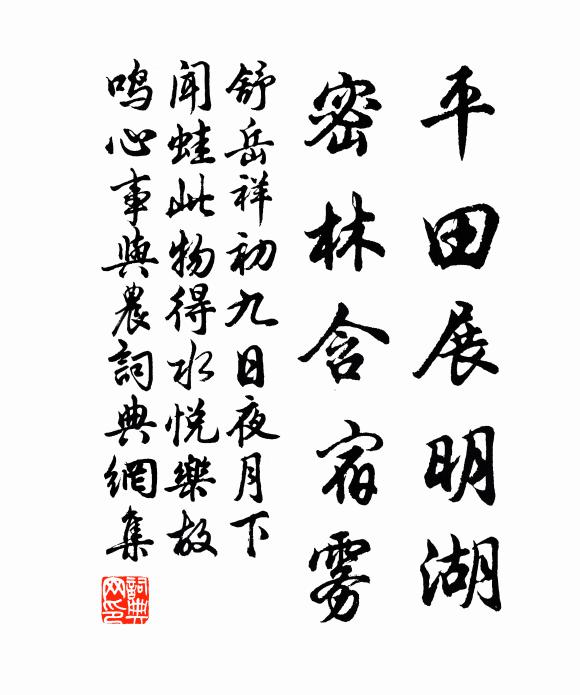 平田展明湖
密林含宿雾
舒岳祥初九日夜月下
闻蛙此物得水悦樂故
鸣心事與農詞典網集
詞典
网印